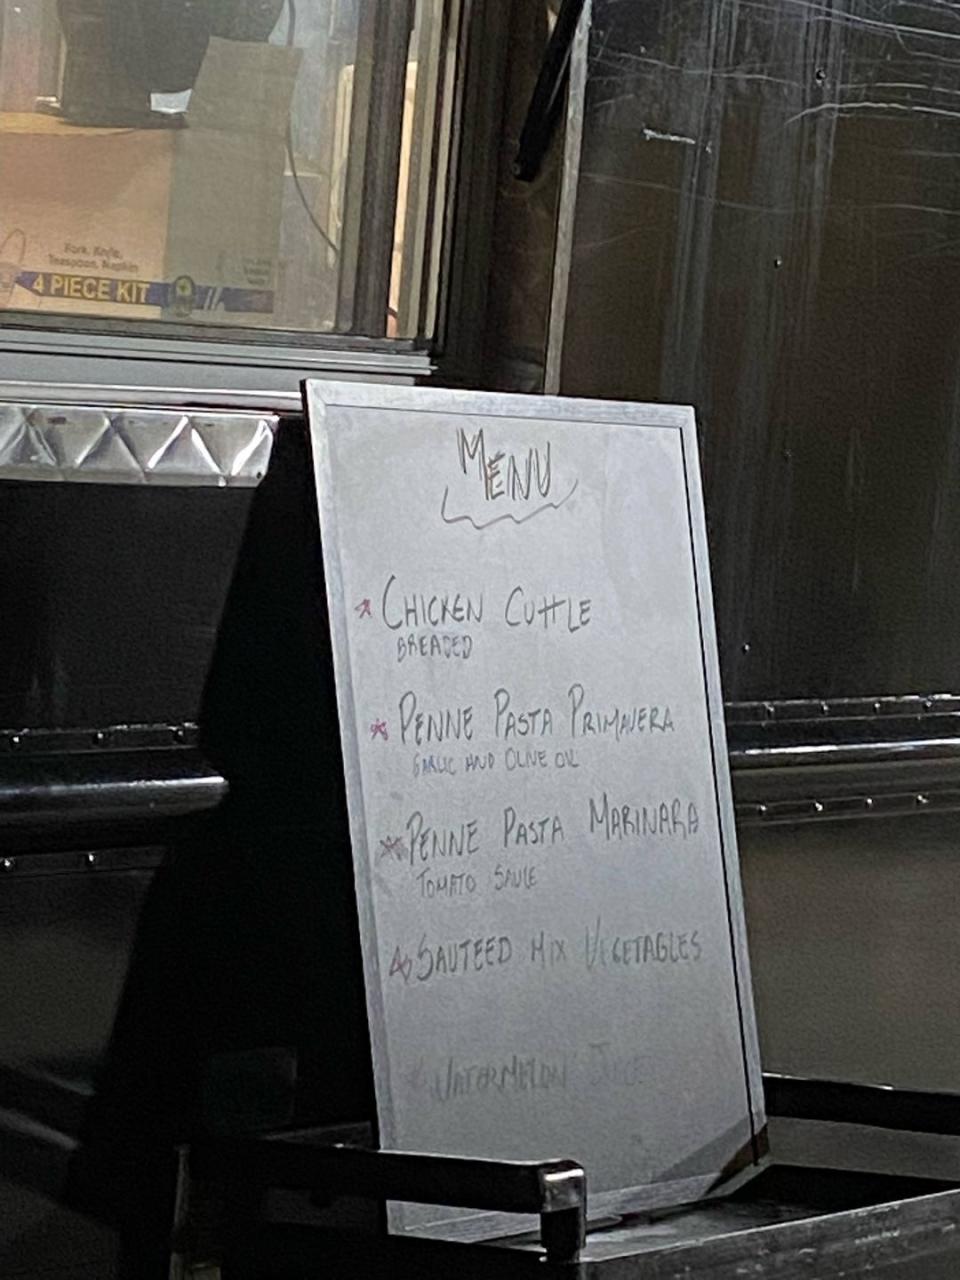 Fork, Knife,
Teaspoon, Napkin
4 PIECE KIT
MENU
CHICKEN CUTTLE
BREADED
PENNE PASTA PRIMAVERA
GARLIC AND OLIVE OIL
PENNE PASTA MARINARA
TOMATO SAUCE
SAUTEED MIX VEGETABLES
WATERMELON JUICE